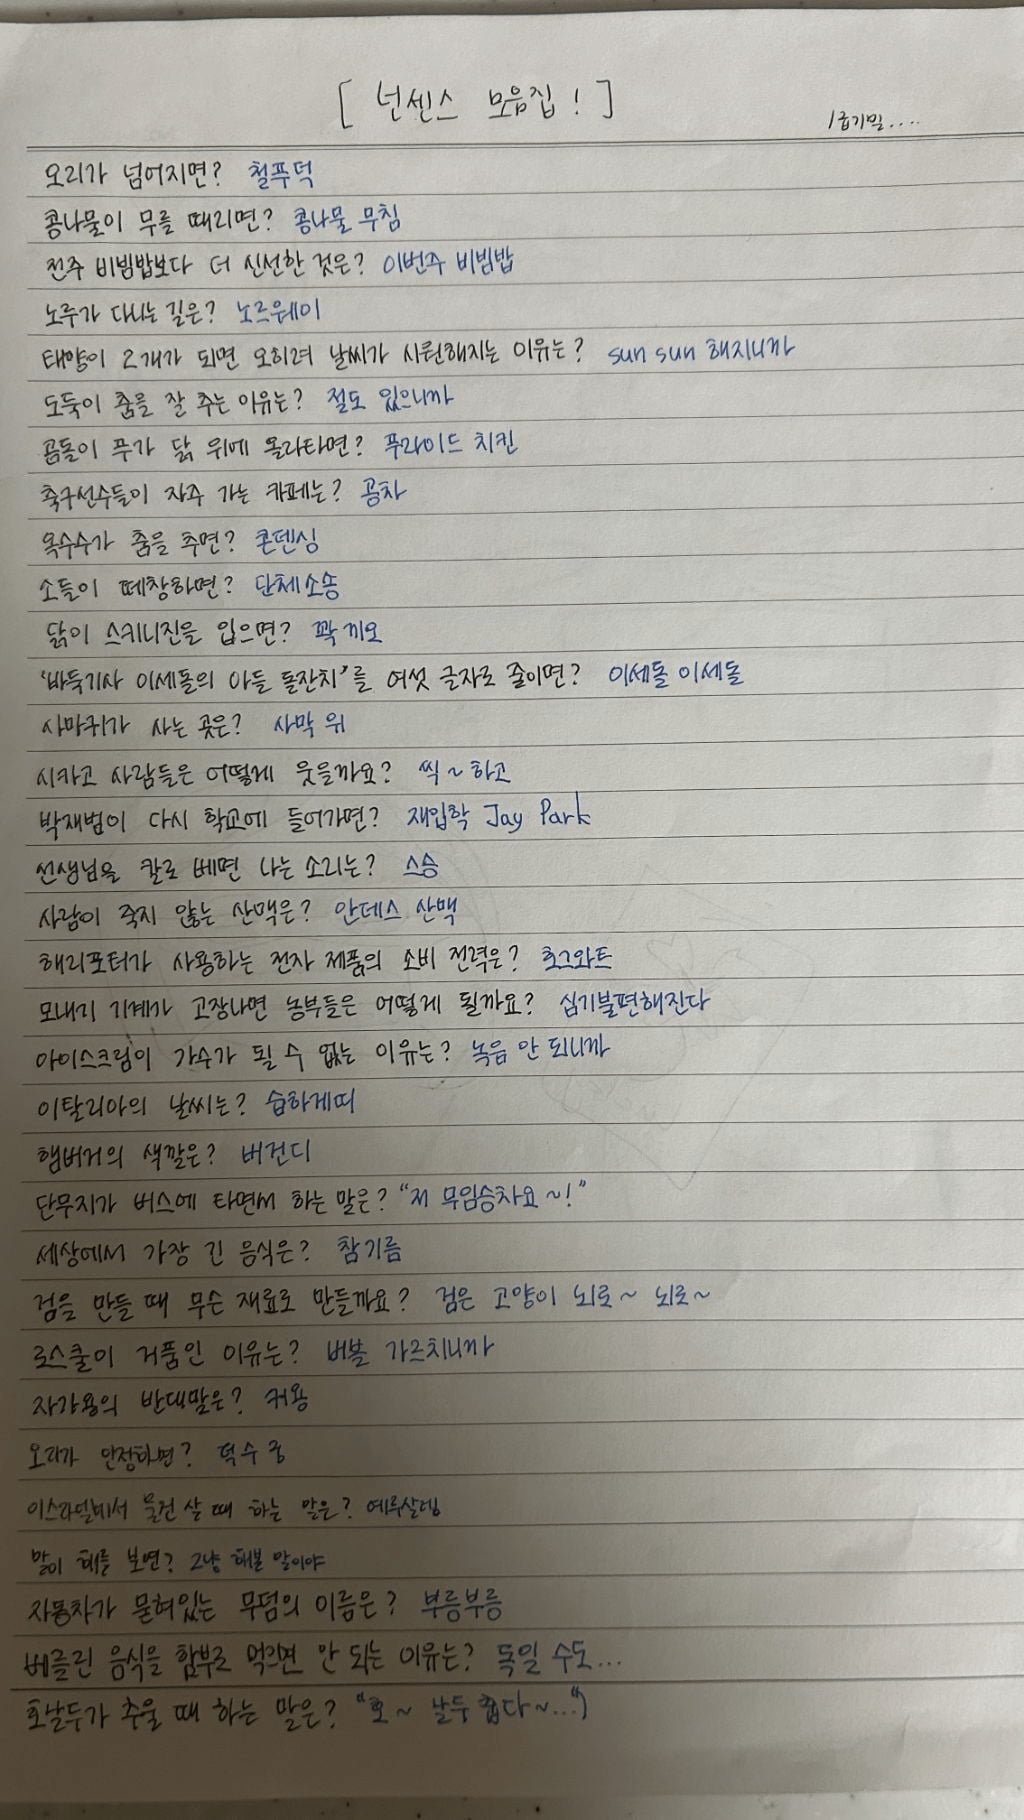 [ 넌센스 모음집! ]
1급기밀....
오리가 넘어지면? 철푸덕
콩나물이 무를 때리면? 콩나물 무침
전주 비빔밥보다 더 신선한 것은? 이번주 비빔밥
노루가 다니는 길은? 노르웨이
태양이 2개가 되면 오히려 날씨가 시원해지는 이유는? sun sun 해지니까
도둑이 춤을 잘 추는 이유는? 절도 있으니까
곰돌이 푸가 닭 위에 올라타면? 푸라이드 치킨
축구선수들이 자주 가는 카페는? 공차
옥수수가 춤을 추면? 콘덴싱
소들이 떼창하면? 단체소송
닭이 스키니진을 입으면? 꽉 끼오
'바둑기사 이세돌의 아들 돌잔치'를 여섯 글자로 줄이면? 이세돌 이세돌
사마귀가 사는 곳은? 사막 위
시카고 사람들은 어떻게 웃을까요? 씩~하고
박재범이 다시 학교에 들어가면? 재입학 Jay Park
선생님을 칼로 베면 나는 소리는? 스승
사람이 죽지 않는 산맥은? 안데스 산맥
해리포터가 사용하는 전자 제품의 소비 전력은? 호그와트
모내기 기계가 고장나면 농부들은 어떻게 될까요? 심기불편해진다
아이스크림이 가수가 될 수 없는 이유는? 녹음 안 되니까
이탈리아의 날씨는? 습하게띠
햄버거의 색깔은? 버건디
단무지가 버스에 타면서 하는 말은? "저 무임승차요~!"
세상에서 가장 긴 음식은? 참기름
검을 만들 때 무슨 재료로 만들까요? 검은 고양이 뇌로~ 뇌로~
로스쿨이 거품인 이유는? 버블 가르치니까
자가용의 반대말은? 커용
오리가 인정하면? 덕수긍
이스라엘에서 물건 살 때 하는 말은? 예루살렘
말이 해를 보면? 그냥 해본 말이야
자동차가 묻혀있는 무덤의 이름은? 부릉부릉
베를린 음식을 함부로 먹으면 안 되는 이유는? 독일 수도...
호날두가 추울 때 하는 말은? "호~ 날두 춥다~..."